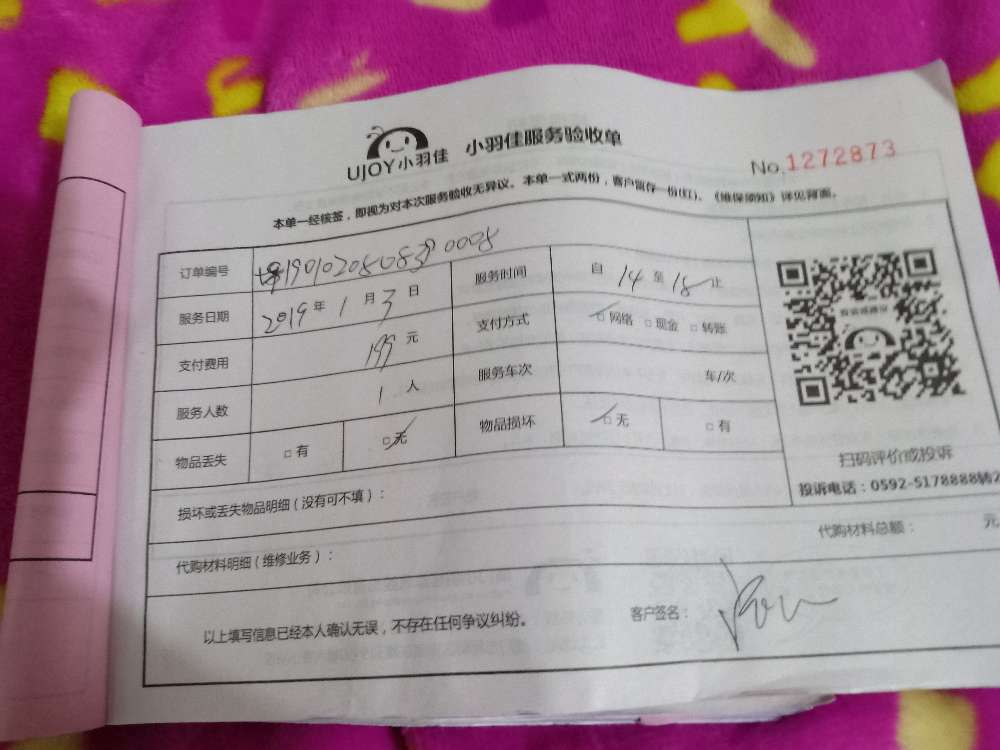 UJOY小羽佳 小羽佳服务验收单
No.1272873
本单一经核签，即视为对本次服务验收无异议。本单一式两份，客户留存一份(红)。《维保须知》详见背面。
订单编号
服务时间 自 14 至 18 止
服务日期 2019 年 1 月 3 日
支付方式 □网络 □现金 □转账
支付费用 199 元
服务车次 车/次
服务人数 1 人
物品损坏 □无 □有
物品丢失 □有 □无
扫码评价或投诉
投诉电话：0592-5178888转2
损坏或丢失物品明细（没有可不填）：
代购材料明细（维修业务）： 代购材料总额： 元
以上填写信息已经本人确认无误，不存在任何争议纠纷。 客户签名：